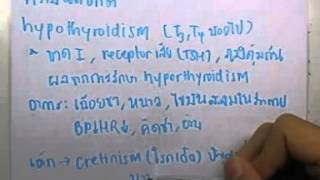 hypothyroidism (T3, T4 น้อยไป)
* ขาด I, receptor เสีย (TSH), 
ผลจากการรักษา hyperthyroidism
อาการ: เฉื่อยชา, หนาว, ไขมันสะสมในร่างกาย
BP↓HR↓, คิดช้า, อ้วน
เด็ก → cretinism (โรคเอ๋อ)